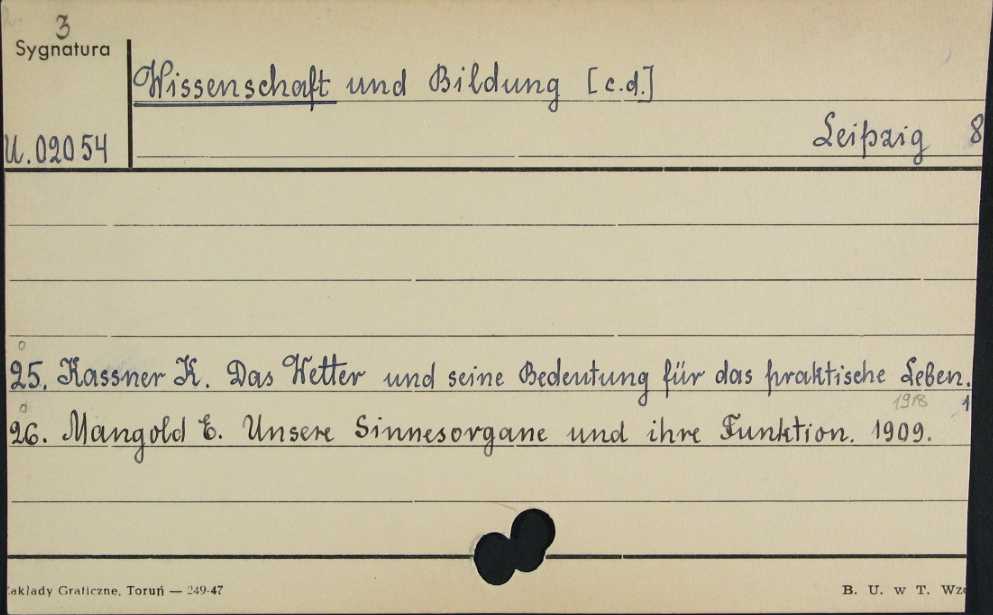 3
Sygnatura
Wissenschaft und Bildung [c.d.]
U.02054
Leipzig 8
25. Kassner K. Das Wetter und seine Bedeutung für das praktische Leben.
1918 1
26. Mangold E. Unsere Sinnesorgane und ihre Funktion. 1909.
Zakłady Graficzne, Toruń — 249-47
B. U. w T. Wzó